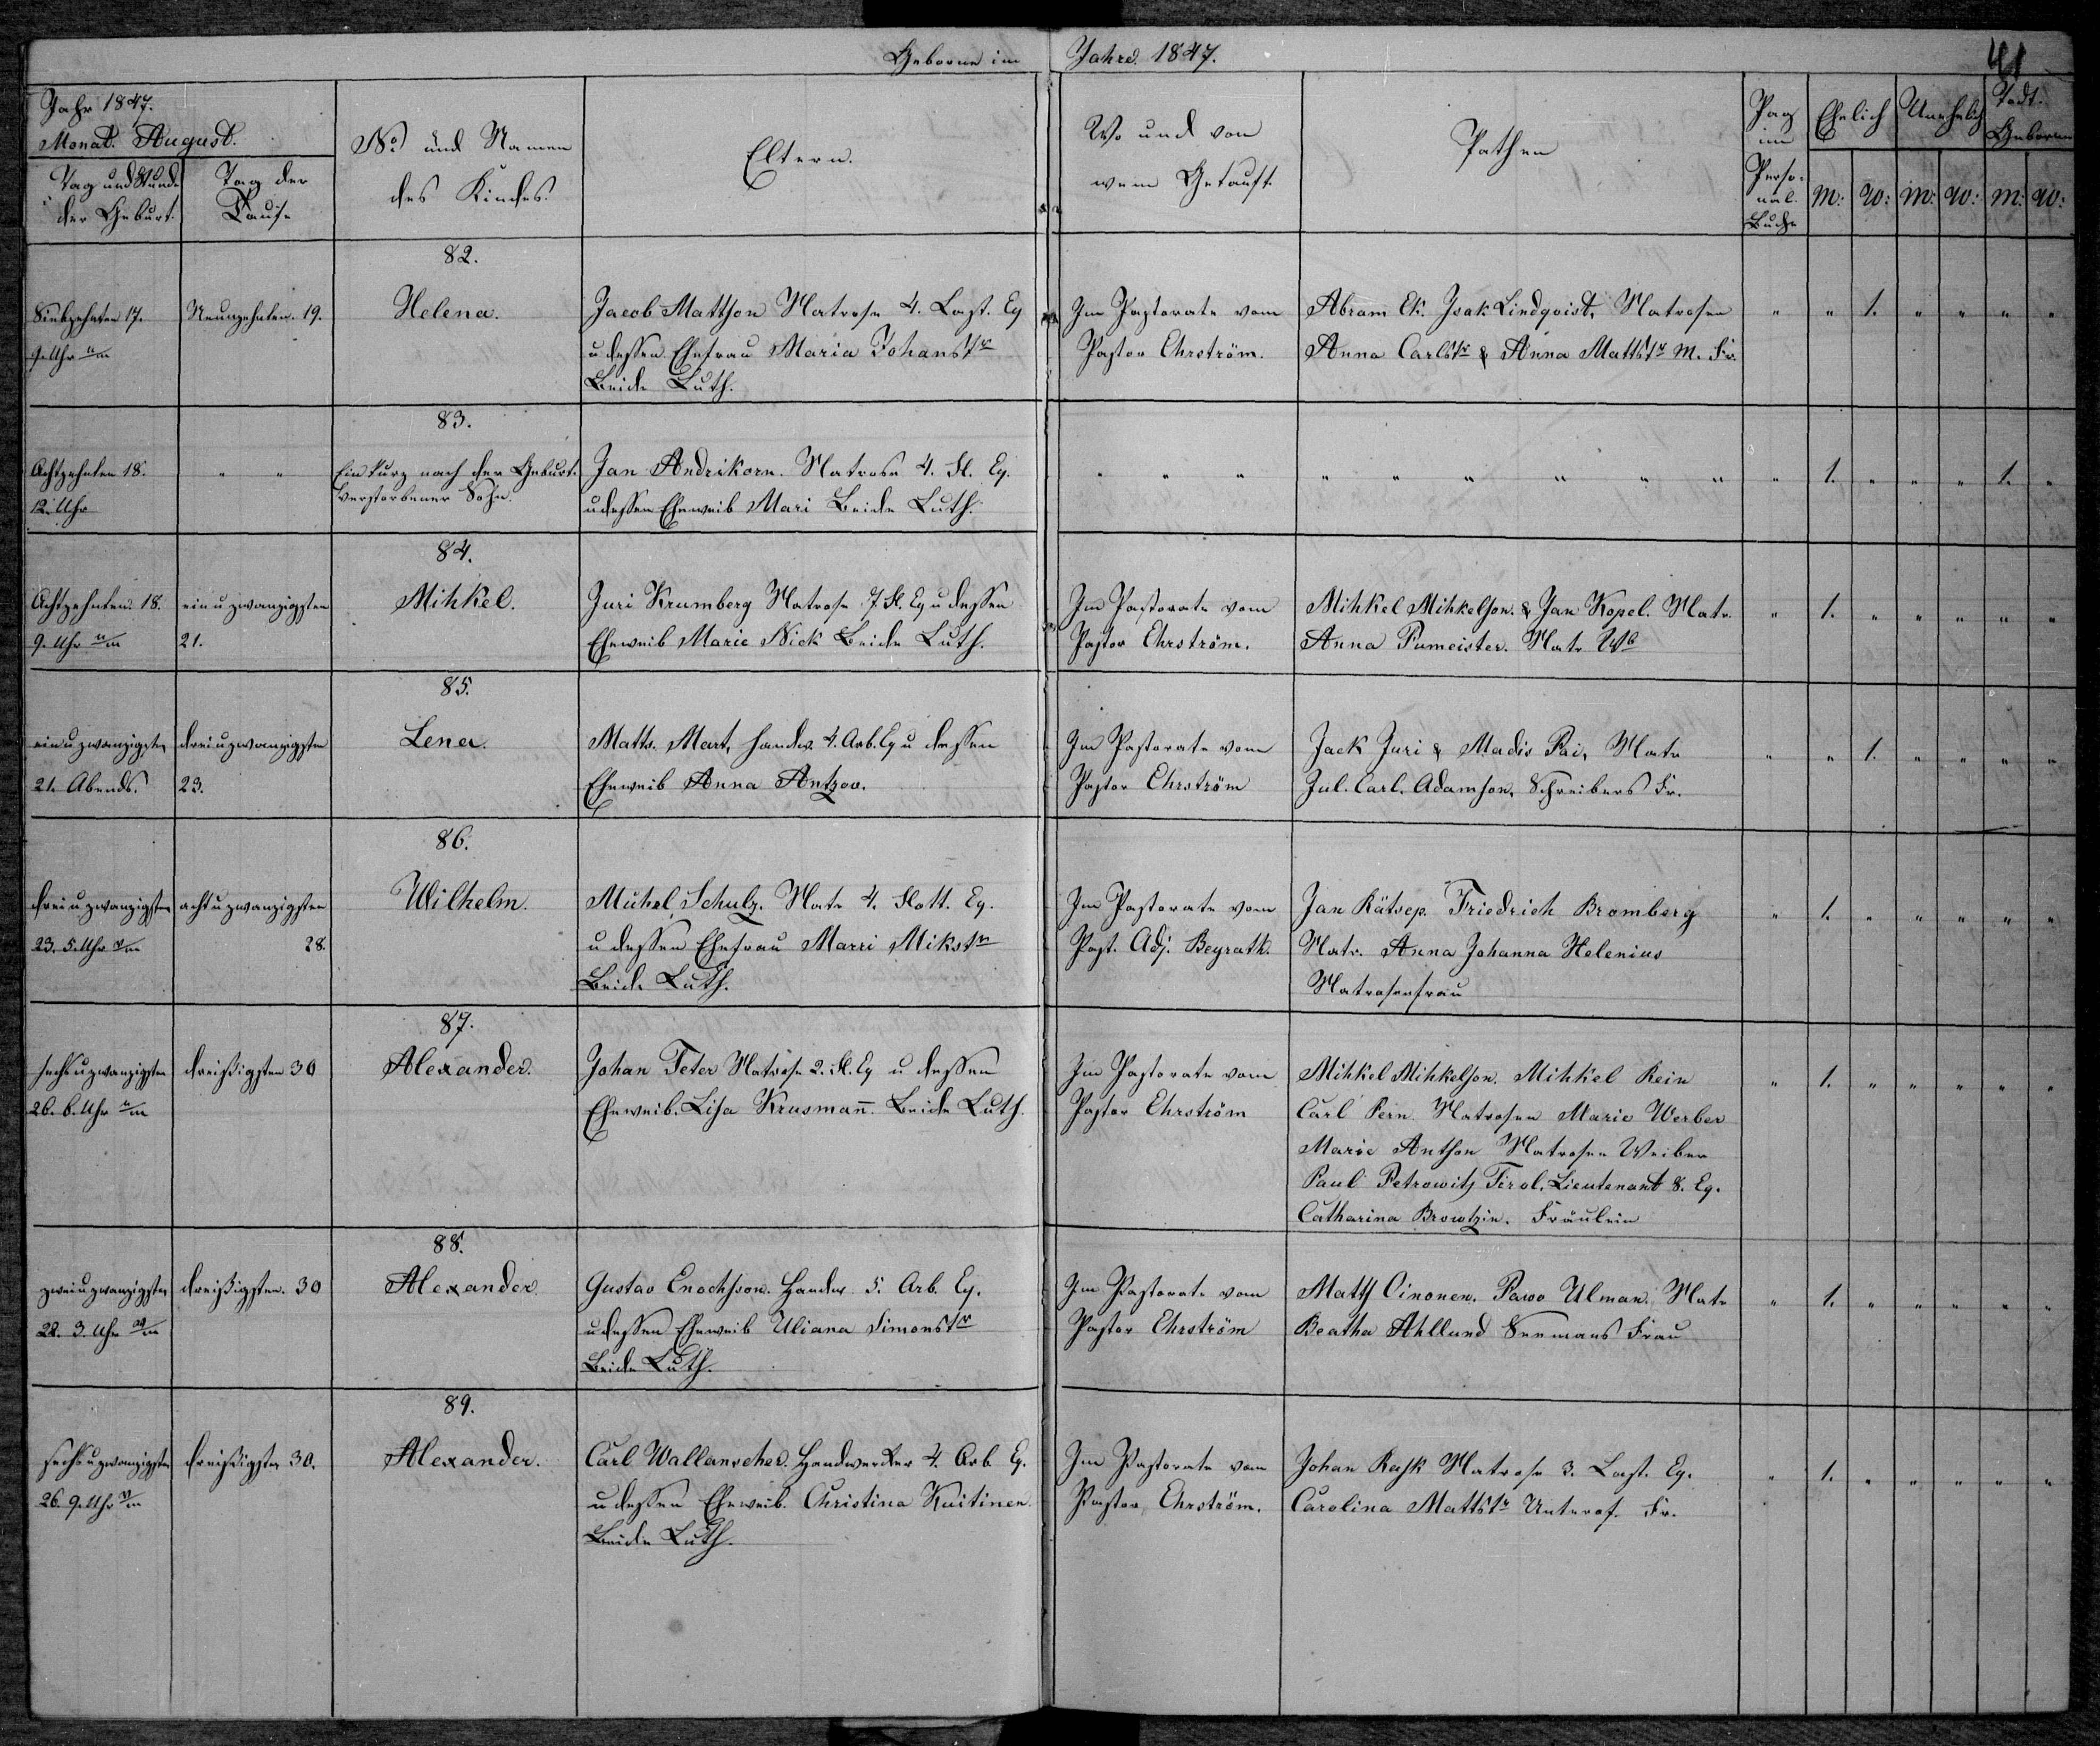 Geborne im Jahre 1847.
41
Jahr 1847.
Monat. August.
Tag und Stunde
der Geburt.
Tag der
Taufe
No und Namen
des Kindes.
Eltern.
Wo und von
wem Getauft.
Pathen
Pag
im
Perso-
nal.
Buche
Ehelich
Unehelich
Todt.
Geborne
m: w: m: w: m: w:
82.
Siebzehnten 17.
9. Uhr
Neunzehnten. 19.
Helena.
Jacob Mattson Matrose 4. Last. Eq
u dessen Ehefrau Maria Johanstr
Beide Luth.
Im Pastorate vom
Pastor Ehrström.
Abram Ek. Isak Lindqvist, Matrosen
Anna Carlstr & Anna Mattstr M. Fr.
" " 1. " " " "
83.
Achtzehnten 18.
12. Uhr
" "
Ein kurz nach der Geburt.
verstorbener Sohn.
Jan Andrikorn. Matrose 4. Fl. Eq.
u dessen Eheweib Mari Beide Luth.
" " "
" " " " " "
" 1. " " " 1. "
84.
Achtzehnten. 18.
9. Uhr
ein u zwanzigsten
21.
Mihkel.
Juri Krumberg Matrose 7. Fl. Eq u dessen
Eheweib Marie Nick Beide Luth.
Im Pastorate vom
Pastor Ehrström.
Mihkel Mihkelson. & Jan Kopel. Matr.
Anna Pumeister. Matr Wb
" 1. " " " " "
85.
ein u zwanzigsten
21. Abends.
drei u zwanzigsten
23.
Lena.
Matts. Mart, Handw. 4. Arb. Eq u dessen
Eheweib Anna Antzov.
Im Pastorate vom
Pastor Ehrström
Jack Juri & Madis Pai, Matr
Jul. Carl. Adamson, Schreibers Fr.
" " 1. " " " "
86.
drei u zwanzigsten
23. 5. Uhr
acht u zwanzigsten
28.
Wilhelm.
Mickel Schulz. Matr 4. Flott. Eq.
u dessen Ehefrau Marri Mikstr
Beide Luth.
Im Pastorate vom
Past. Adj. Beyrath.
Jan Rätsep. Friedrich Bromberg
Matr. Anna Johanna Helenius
Matrosenfrau
" 1. " " " " "
87.
sechs u zwanzigsten
26. 6. Uhr
dreißigsten 30
Alexander.
Johan Teter Matrose 2. Fl. Eq u dessen
Eheweib. Lisa Krusmañ. Beide Luth.
Im Pastorate vom
Pastor Ehrström
Mihkel Mihkelson. Mihkel Rein
Carl Pern. Matrosen Marie Werber
Marie Anthon Matrosen Weiber
Paul Petrowitz Tirol. Lieutenant 8. Eq.
Catharina Browtzin. Fräulein
" 1. " " " " "
88.
zwei u zwanzigsten
22. 3. Uhr
dreißigsten. 30
Alexander
Gustav Enochsson. Handw. 5. Arb. Eq.
u dessen Eheweib Uliana Simonstr
Beide Luth.
Im Pastorate vom
Pastor Ehrström
Matts Oinonen. Pawo Ulman. Matr
Beatha Ahllund Seemans Frau
" 1. " " " " "
89.
sechs u zwanzigsten
26. 9. Uhr
dreißigsten 30.
Alexander.
Carl Wallanscher. Handwerker 4. Arb. Eq.
u dessen Eheweib. Christina Kuitinen.
Beide Luth.
Im Pastorate vom
Pastor Ehrström.
Johan Rask Matrose 3. Last. Eq.
Carolina Mattstr Unterof. Fr.
" 1. " " " " "